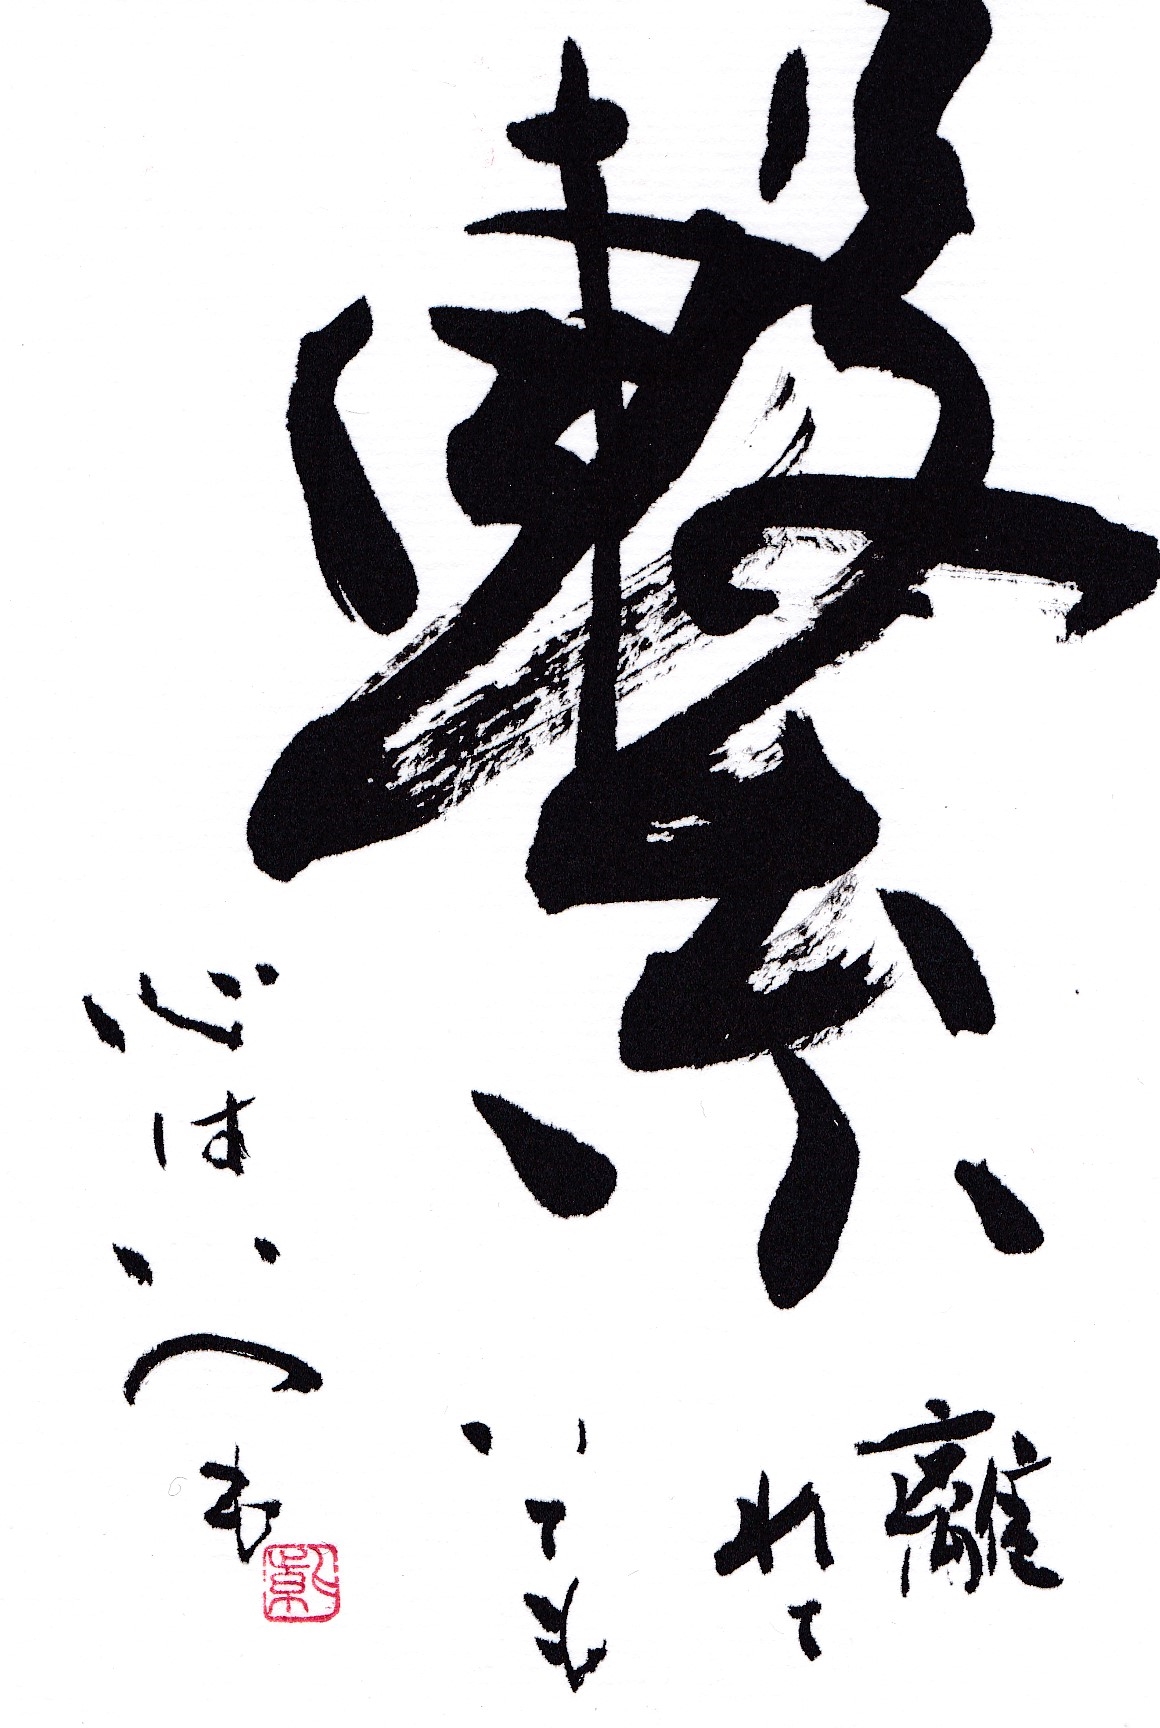 繋
離
れて
いても
心はいつも